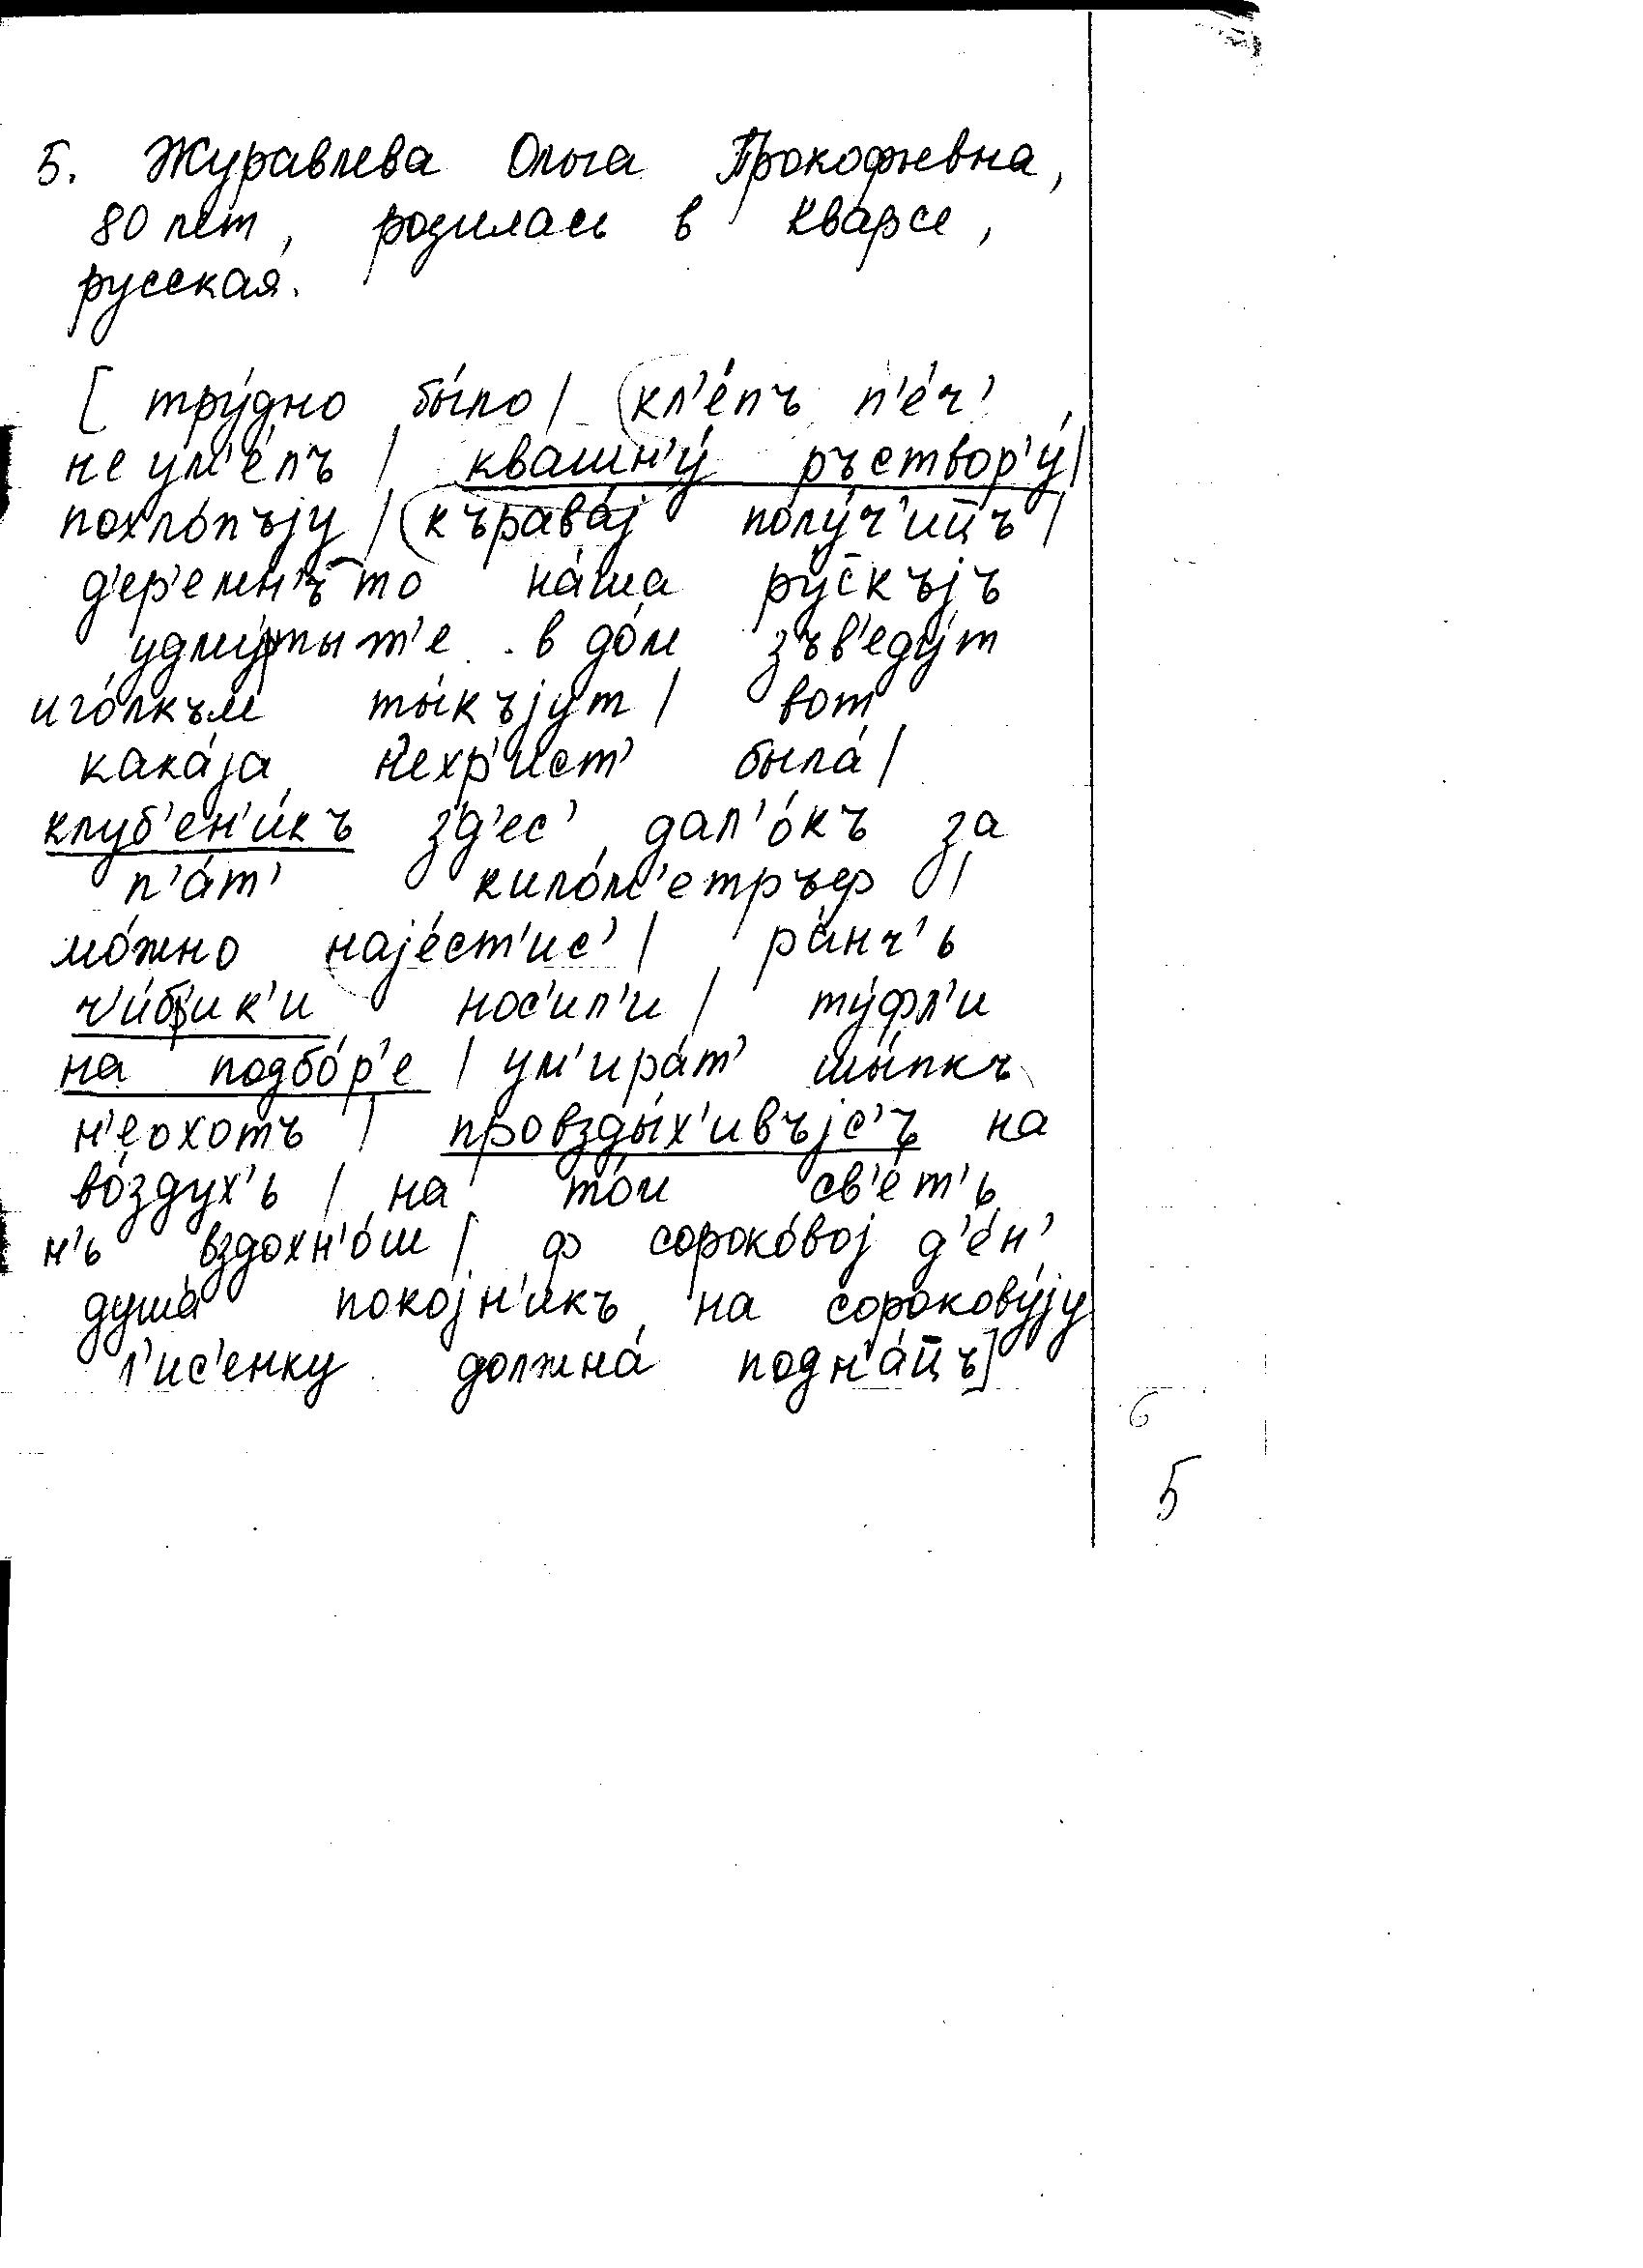 5. Журавлева Ольга Прокофьевна,
80 лет, родилась в Кварсе,
русская.
[ тру́дно бы́ло / кл'е́пъ п'е́ч'
не ум'е́лъ / квашн'у́ ръствор'у́ /
похло́пъjу / кърава́j полу́ч'ит̄ъ /
д'ер'емн'ъ то на́ша ру́с̄къjъ
удму́ртыт'е в до́м зъв'еду́т
иго́лкъм ты́къjут / вот
кака́jа нехр'ист' была́ /
клуб'ен'и́къ зд'ес' дал'о́къ за
п'а́т' кило́м'етръф /
мо́жно наjе́ст'ис' / ра́нч'ь
ч'и́б'ик'и нос'ил'и / ту́фл'и
на подбо́р'е / ум'ира́т' шы́пкъ
н'еохотъ / провзды́х'ивъjс'ъ на
во́здух'ь / на то́м св'е́т'ь
н'ь вздохн'о́ш / ф сороко́воj д'е́н'
душа́ покоjн'икъ на сорокову́jу
л'ис'енку должна́ подн'а́ц̄ъ]
6
5